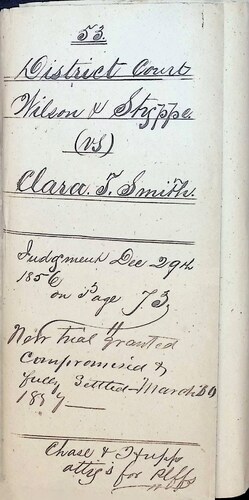 53.
District Court
Wilson & Styppe
(vs)
Clara. T. Smith.
Judgment Dec 29th
1856
on Page 73
New trial granted
compromised &
fully settled March 30
1857
Chase & Hupp
attys for Plffs